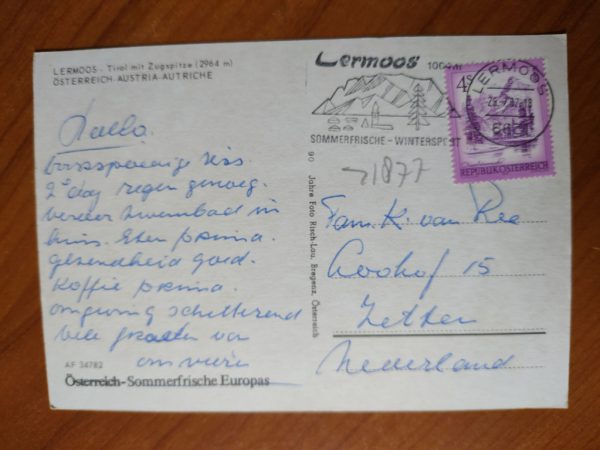 LERMOOS - Tirol mit Zugspitze (2964 m)
ÖSTERREICH-AUSTRIA-AUTRICHE
Hallo.
reis.
2e dag regen genoeg.
verder zwembad in
huis. Eten prima.
gezondheid goed.
Koffie prima.
omgeving schitterend
vele groeten van
AF 34782
Österreich-Sommerfrische Europas
90 Jahre Foto Risch-Lau, Bregenz, Österreich
Lermoos 1000 m
SOMMERFRISCHE - WINTERSPORT
LERMOOS
4S
REPUBLIK ÖSTERREICH
71877
Fam. K. van Ree
15
Zetten
Nederland